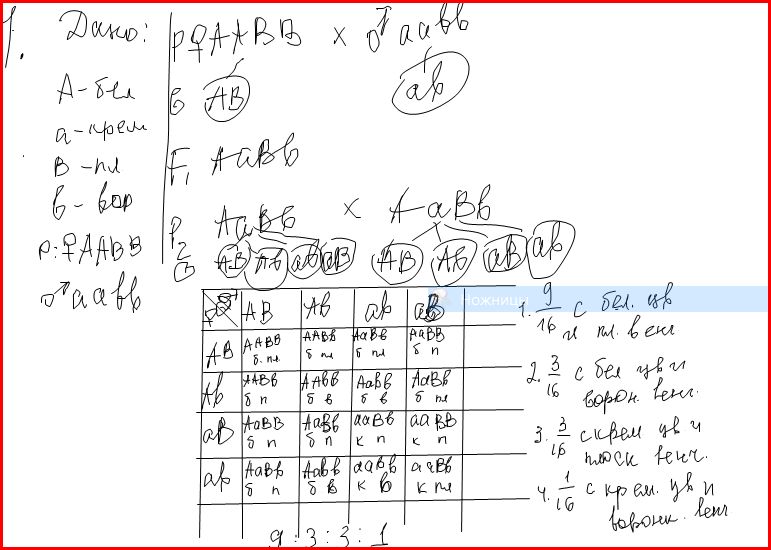 1. Дано:
А-бел
а-крем
В-пл
в-вор
р:♀ААВВ
♂аавв
Р♀ААВВ х ♂аавв
G АВ ав
F₁ АаВв
Р₂ АаВв х АаВв
G АВ Ав аВ АВ Ав аВ ав
Ножницы
♀♂ АВ Ав ав
АВ ААВВ ААВв АаВв АаВВ
б. пл б пл б пл б п
Ав ААВв ААвв Аавв АаВв
б п б в б в б пл
аВ АаВВ АаВв ааВв ааВВ
б п б п к п к п
ав АаВв Аавв аавв ааВв
б п б в к в к пл
9 : 3 : 3 : 1
1. 9/16 с бел. цв
и пл. венч
2. 3/16 с бел цв и
ворон. венч.
3. 3/16 с крем. цв и
плоск венч.
4. 1/16 с крем. цв и
воронк. венч